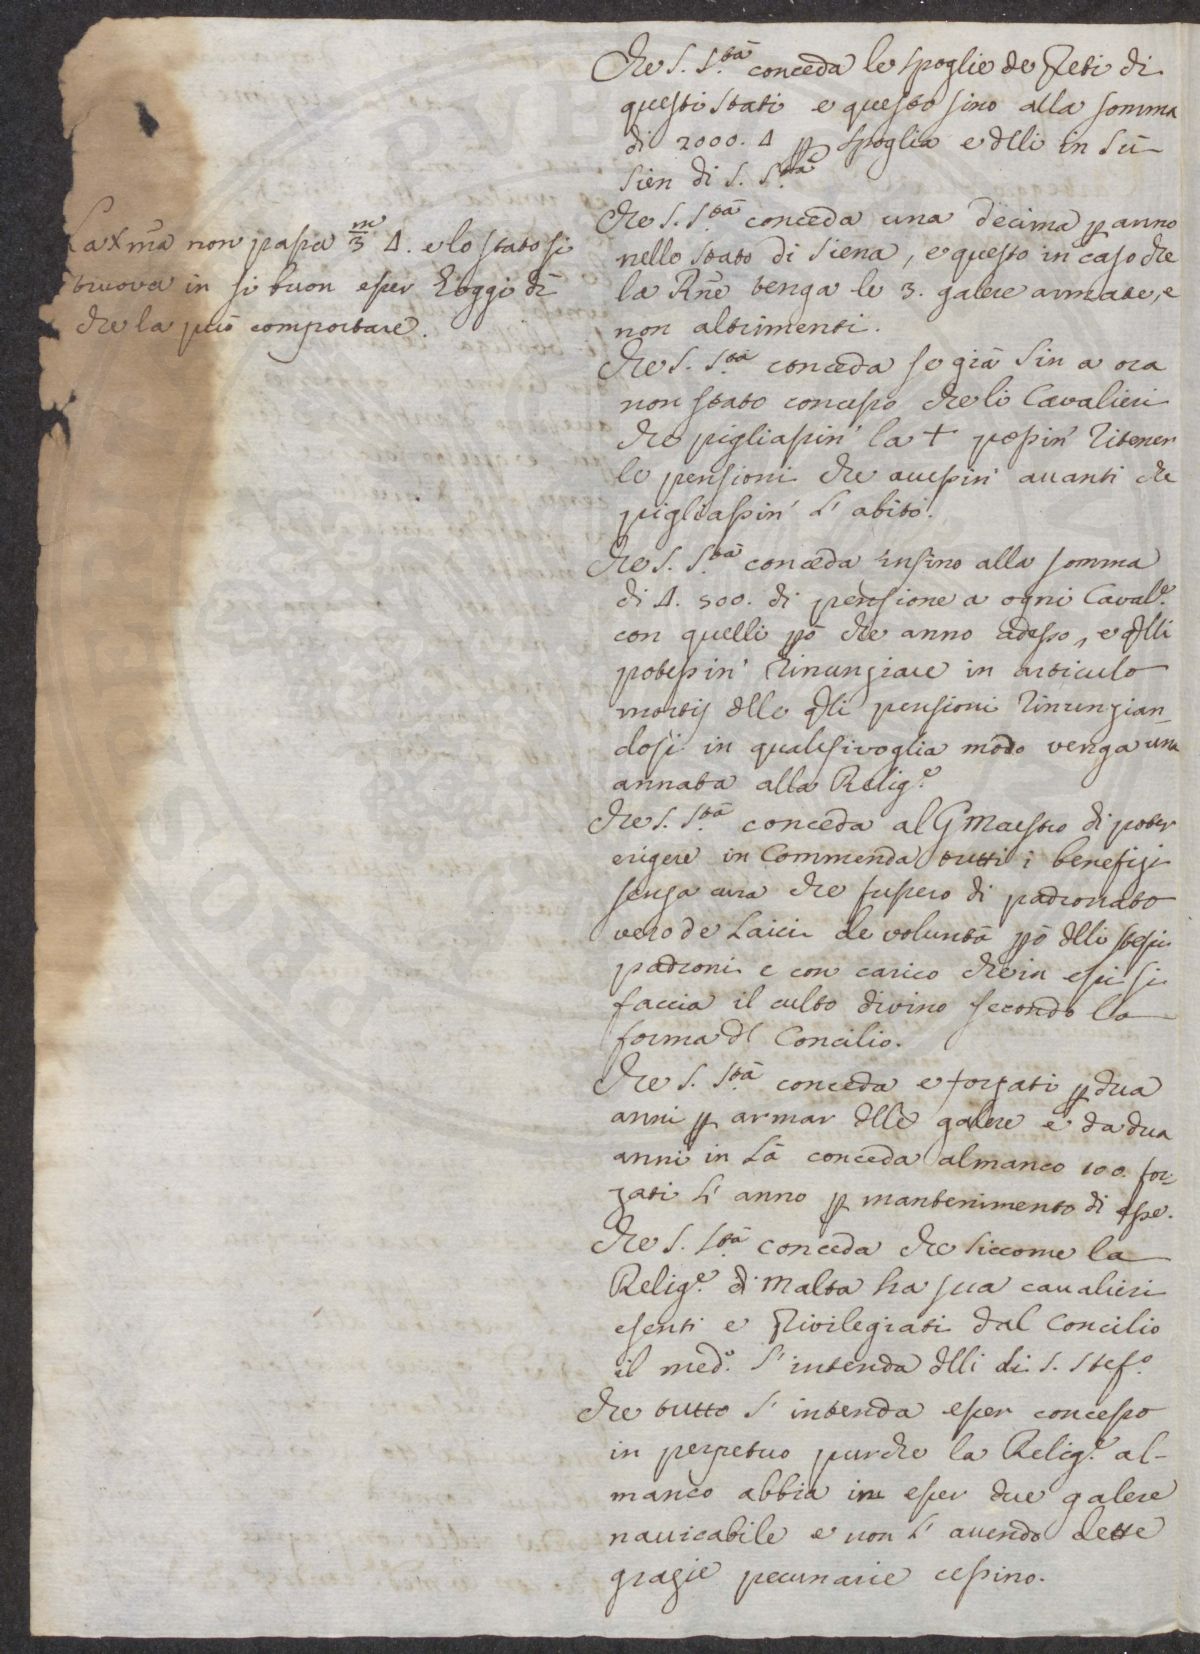 Che S. S.tà conceda le spoglie de Preti di
questi stati e questo sino alla somma
di 2000. ∆ p spoglia e dlli in sù
sien di S. S.tà
Che S. S.tà conceda una decima p anno
nello stato di Siena, e questo in caso che
la Rne tenga le 3. galere armate, e
non altrimenti.
La Xma non passa m/3 ∆. e lo stato si
truova in si buon esser hoggi dì
che la può comportare.
Che S. S.tà conceda se già sin a ora
non stato concesso che li Cavalieri
che pigliassin' la + possin' ritener
le pensioni che avessin' avanti che
pigliassin' l' abito.
Che S. S.tà conceda insino alla somma
di ∆. 500. di pensione a ogni Caval.e
con quelli pò che anno adesso, e qlli
potessin' rinunziare in articulo
mortis dlle qli pensioni rinunzian_
dosi in qualsivoglia modo venga una
annata alla Relig.e
Che S. S.tà conceda al G Maestro di poter
erigere in Commenda tutti i benefizi
senza cura che fussero di padronato
vero de Laici de voluntà pò dlli stessi
padroni e con carico che in essi si
faccia il culto divino secondo la
forma dl Concilio.
Che S. S.tà conceda e forzati p dua
anni p armar dlle galere e da dua
anni in là conceda almanco 100. for_
zati l' anno p mantenimento di esse.
Che S. S.tà conceda che siccome la
Relig.e di Malta ha sua cavalieri
esenti e Privilegiati dal Concilio
il med.o s' intenda dlli di S. Stef.o
Che tutto s' intenda esser concesso
in perpetuo purche la Relig.e al-
manco abbia in esser due galere
navicabile e non l' avendo dette
grazie pecuniarie cessino.